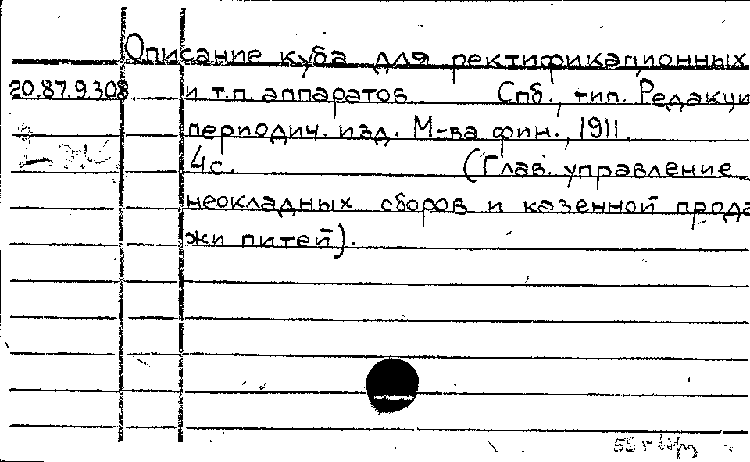 Описание куба для ректификационных
20.87.9.308 и т.п. аппаратов. Спб., тип. Редакци
периодич. изд. М-ва фин., 1911.
4с. (Глав. управление
неокладных сборов и казенной прода
жи питей).